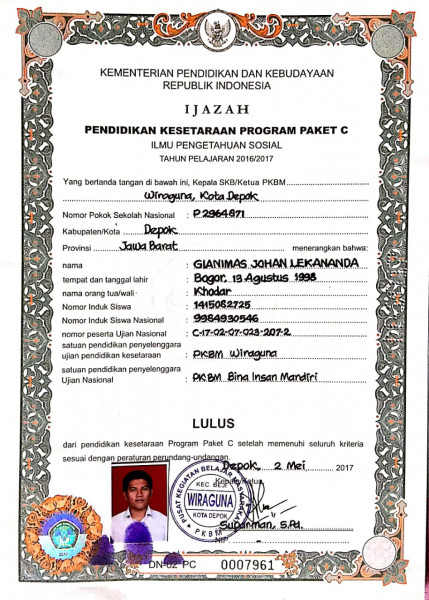 KEMENTERIAN PENDIDIKAN DAN KEBUDAYAAN
REPUBLIK INDONESIA
IJAZAH
PENDIDIKAN KESETARAAN PROGRAM PAKET C
ILMU PENGETAHUAN SOSIAL
TAHUN PELAJARAN 2016/2017
Yang bertanda tangan di bawah ini, Kepala SKB/Ketua PKBM
Wiraguna, Kota Depok
Nomor Pokok Sekolah Nasional : P2964871
Kabupaten/Kota : Depok
Provinsi : Jawa Barat menerangkan bahwa:
nama : GIANIMAS JOHAN LEKANANDA
tempat dan tanggal lahir : Bogor, 13 Agustus 1998
nama orang tua/wali : Khodar
Nomor Induk Siswa : 1415082725
Nomor Induk Siswa Nasional : 9984930546
nomor peserta Ujian Nasional : C-17-02-07-023-207-2
satuan pendidikan penyelenggara
ujian pendidikan kesetaraan : PKBM Wiraguna
satuan pendidikan penyelenggara
Ujian Nasional : PKBM Bina Insan Mandiri
LULUS
dari pendidikan kesetaraan Program Paket C setelah memenuhi seluruh kriteria
sesuai dengan peraturan perundang-undangan.
Depok, 2 Mei 2017
Kepala/Ketua
PUSAT KEGIATAN BELAJAR MASYARAKAT
KEC BEJI
WIRAGUNA
KOTA DEPOK
PKBM
Suparman, S.Pd.
NIP
DN-02 PC 0007961